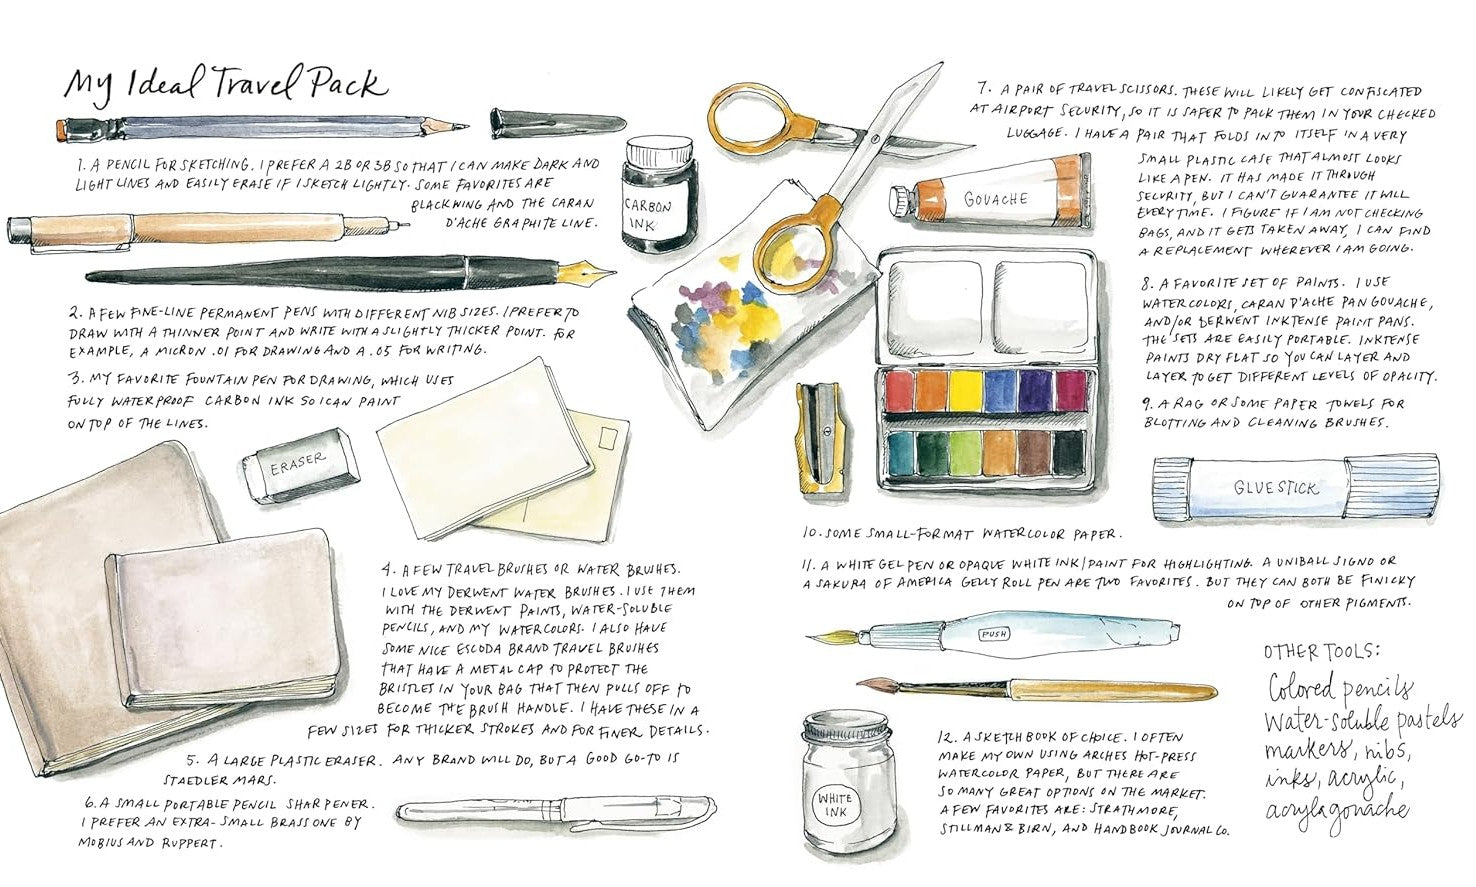 My Ideal Travel Pack
1. A PENCIL FOR SKETCHING. I PREFER A 2B OR 3B SO THAT I CAN MAKE DARK AND
LIGHT LINES AND EASILY ERASE IF I SKETCH LIGHTLY. SOME FAVORITES ARE
BLACKWING AND THE CARAN
D'ACHE GRAPHITE LINE.
2. A FEW FINE-LINE PERMANENT PENS WITH DIFFERENT NIB SIZES. I PREFER TO
DRAW WITH A THINNER POINT AND WRITE WITH A SLIGHTLY THICKER POINT. FOR
EXAMPLE, A MICRON .01 FOR DRAWING AND A .05 FOR WRITING.
3. MY FAVORITE FOUNTAIN PEN FOR DRAWING, WHICH USES
FULLY WATERPROOF CARBON INK SO I CAN PAINT
ON TOP OF THE LINES.
ERASER
4. A FEW TRAVEL BRUSHES OR WATER BRUSHES.
I LOVE MY DERWENT WATER BRUSHES. I USE THEM
WITH THE DERWENT PAINTS, WATER-SOLUBLE
PENCILS, AND MY WATERCOLORS. I ALSO HAVE
SOME NICE ESCODA BRAND TRAVEL BRUSHES
THAT HAVE A METAL CAP TO PROTECT THE
BRISTLES IN YOUR BAG THAT THEN PULLS OFF TO
BECOME THE BRUSH HANDLE. I HAVE THESE IN A
FEW SIZES FOR THICKER STROKES AND FOR FINER DETAILS.
5. A LARGE PLASTIC ERASER. ANY BRAND WILL DO, BUT A GOOD GO-TO IS
STAEDLER MARS.
6. A SMALL PORTABLE PENCIL SHARPENER.
I PREFER AN EXTRA-SMALL BRASS ONE BY
MOBIUS AND RUPPERT.
CARBON
INK
GOUACHE
7. A PAIR OF TRAVEL SCISSORS. THESE WILL LIKELY GET CONFISCATED
AT AIRPORT SECURITY, SO IT IS SAFER TO PACK THEM IN YOUR CHECKED
LUGGAGE. I HAVE A PAIR THAT FOLDS INTO ITSELF IN A VERY
SMALL PLASTIC CASE THAT ALMOST LOOKS
LIKE A PEN. IT HAS MADE IT THROUGH
SECURITY, BUT I CAN'T GUARANTEE IT WILL
EVERY TIME. I FIGURE IF I AM NOT CHECKING
BAGS, AND IT GETS TAKEN AWAY, I CAN FIND
A REPLACEMENT WHEREVER I AM GOING.
8. A FAVORITE SET OF PAINTS. I USE
WATERCOLORS, CARAN D'ACHE PAN GOUACHE,
AND/OR DERWENT INKTENSE PAINT PANS.
THE SETS ARE EASILY PORTABLE. INKTENSE
PAINTS DRY FLAT SO YOU CAN LAYER AND
LAYER TO GET DIFFERENT LEVELS OF OPACITY.
9. A RAG OR SOME PAPER TOWELS FOR
BLOTTING AND CLEANING BRUSHES.
GLUE STICK
10. SOME SMALL-FORMAT WATERCOLOR PAPER.
11. A WHITE GEL PEN OR OPAQUE WHITE INK/PAINT FOR HIGHLIGHTING. A UNIBALL SIGNO OR
A SAKURA OF AMERICA GELLY ROLL PEN ARE TWO FAVORITES. BUT THEY CAN BOTH BE FINICKY
ON TOP OF OTHER PIGMENTS.
PUSH
WHITE
INK
12. A SKETCHBOOK OF CHOICE. I OFTEN
MAKE MY OWN USING ARCHES HOT-PRESS
WATERCOLOR PAPER, BUT THERE ARE
SO MANY GREAT OPTIONS ON THE MARKET.
A FEW FAVORITES ARE: STRATHMORE,
STILLMAN & BIRN, AND HANDBOOK JOURNAL CO.
OTHER TOOLS:
Colored pencils
Water-soluble pastels
markers, nibs,
inks, acrylic,
acryla gouache